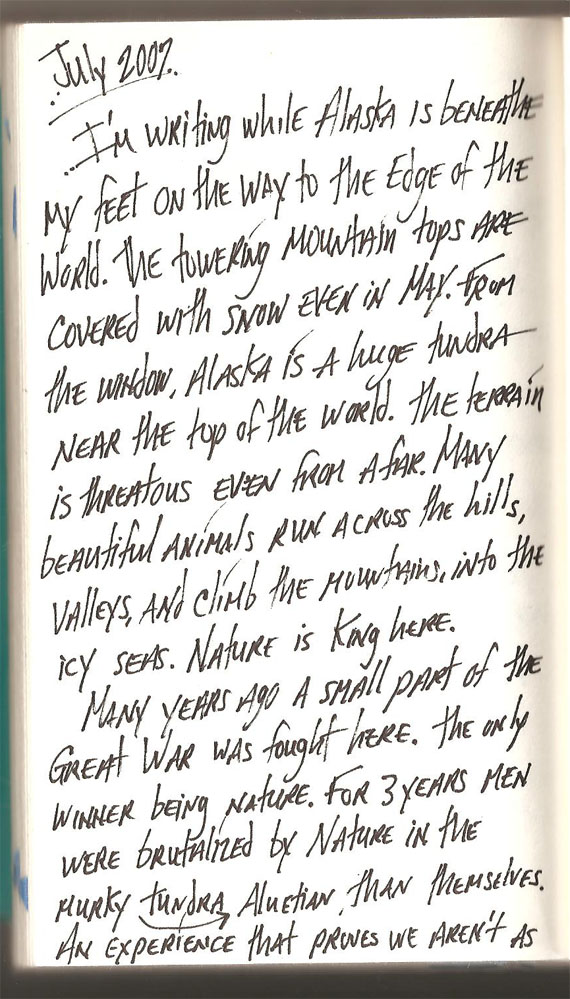 July 2007.
I'm writing while Alaska is beneathe
my feet on the way to the Edge of the
World. The towering mountain tops are
covered with snow even in May. From
the window, Alaska is a huge tundra
near the top of the world. The terrain
is threatous even from afar. Many
beautiful animals run across the hills,
valleys, and climb the mountains, into the
icy seas. Nature is King here.
Many years ago a small part of the
Great War was fought here. The only
winner being nature. For 3 years men
were brutalized by Nature in the
murky tundra Aluetian, than themselves.
An experience that proves we aren't as